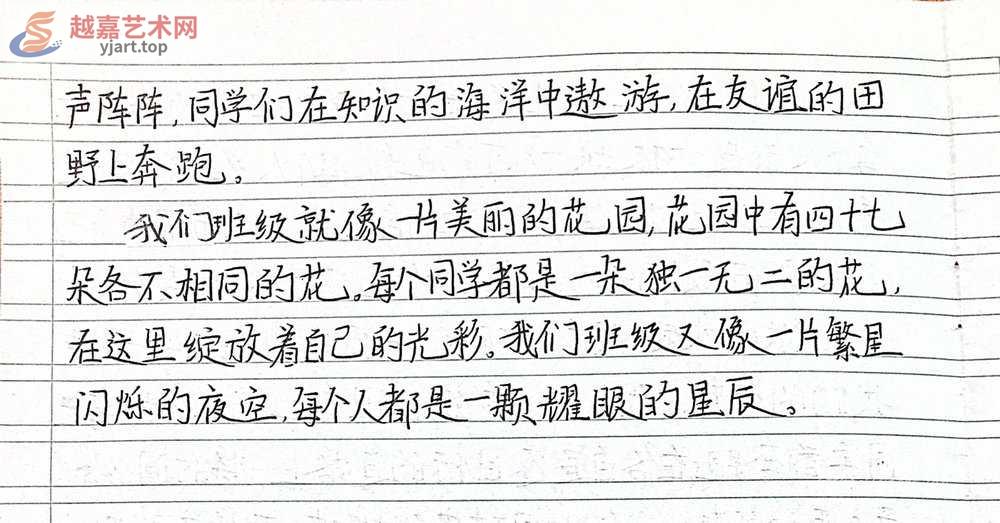 越嘉艺术网
yjart.top
声阵阵,同学们在知识的海洋中遨游,在友谊的田
野上奔跑。
我们班级就像一片美丽的花园,花园中有四十七
朵各不相同的花。每个同学都是一朵独一无二的花,
在这里绽放着自己的光彩。我们班级又像一片繁星
闪烁的夜空,每个人都是一颗耀眼的星辰。